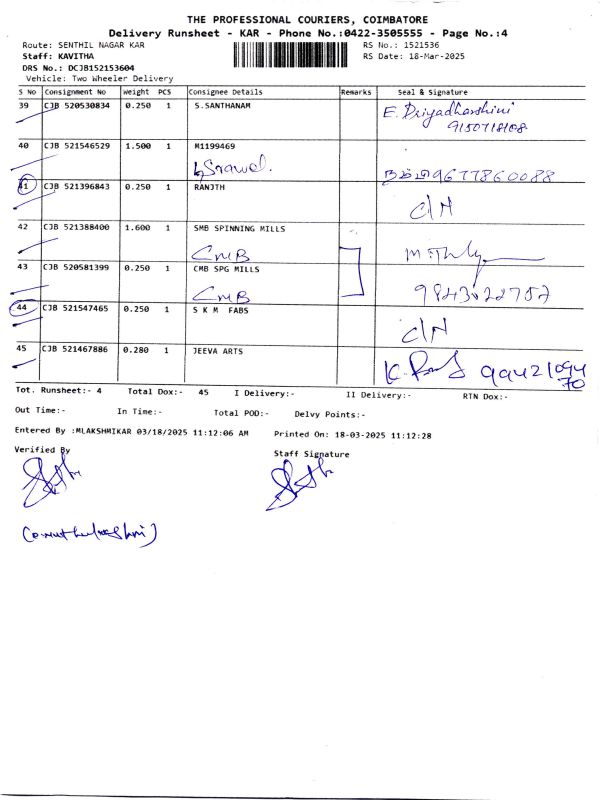 THE PROFESSIONAL COURIERS, COIMBATORE
Delivery Runsheet - KAR - Phone No.:0422-3505555 - Page No.:4
Route: SENTHIL NAGAR KAR RS No.: 1521536
Staff: KAVITHA RS Date: 18-Mar-2025
DRS No.: DCJB152153604
Vehicle: Two Wheeler Delivery
S No Consignment No Weight PCS Consignee Details Remarks Seal & Signature
39 CJB 520530834 0.250 1 S.SANTHANAM E. Priyadharshini
9150718108
40 CJB 521546529 1.500 1 M1199469
9677860088
41 CJB 521396843 0.250 1 RANJTH
C/N
42 CJB 521388400 1.600 1 SMB SPINNING MILLS
CMB
43 CJB 520581399 0.250 1 CMB SPG MILLS
CMB
44 CJB 521547465 0.250 1 S K M FABS
C/N
45 CJB 521467886 0.280 1 JEEVA ARTS
99421094
70
Tot. Runsheet:- 4 Total Dox:- 45 I Delivery:- II Delivery:- RTN Dox:-
Out Time:- In Time:- Total POD:- Delvy Points:-
Entered By :MLAKSHMIKAR 03/18/2025 11:12:06 AM Printed On: 18-03-2025 11:12:28
Verified By Staff Signature